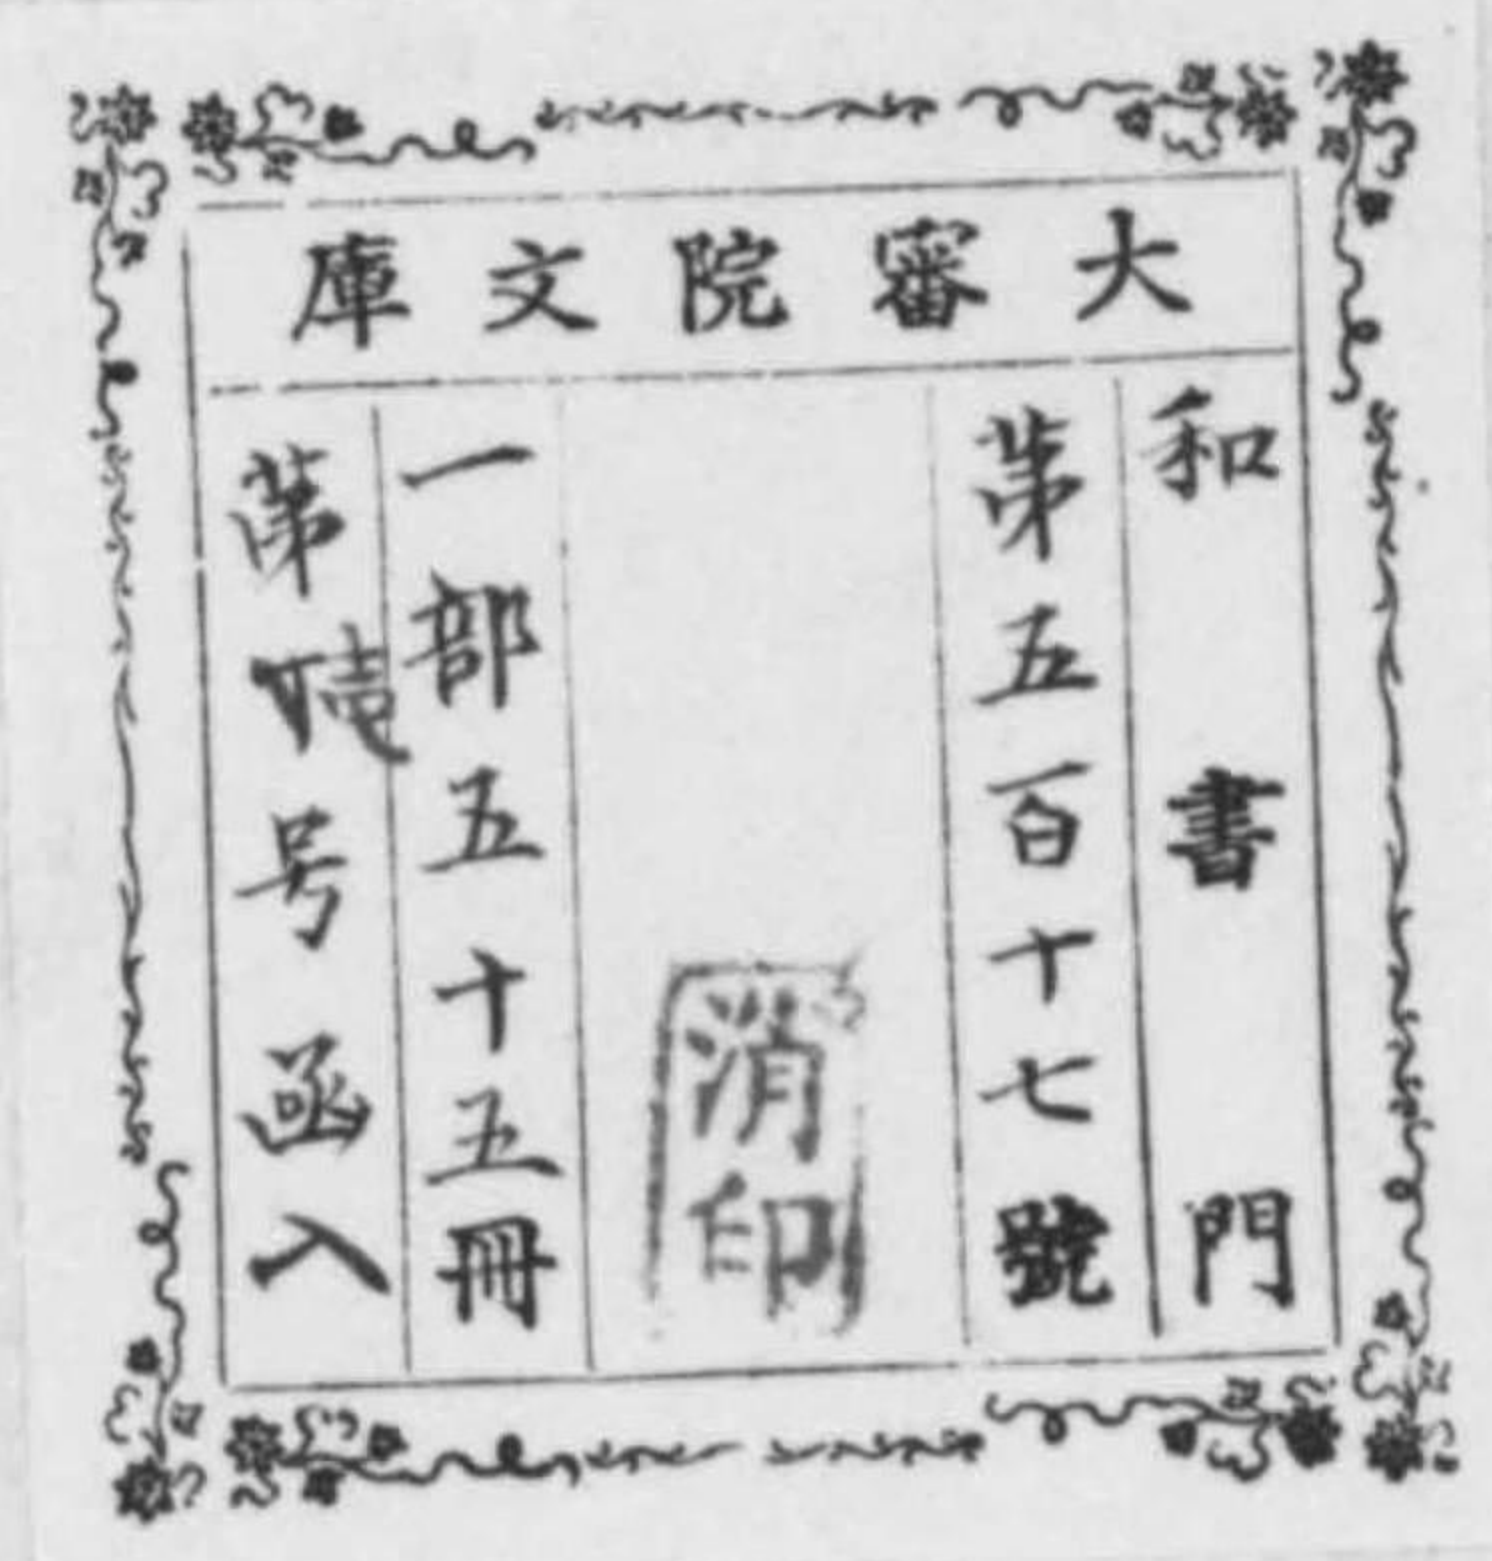 大審院文庫
和書門
第五百十七號
消印
一部五十五冊
第号函入